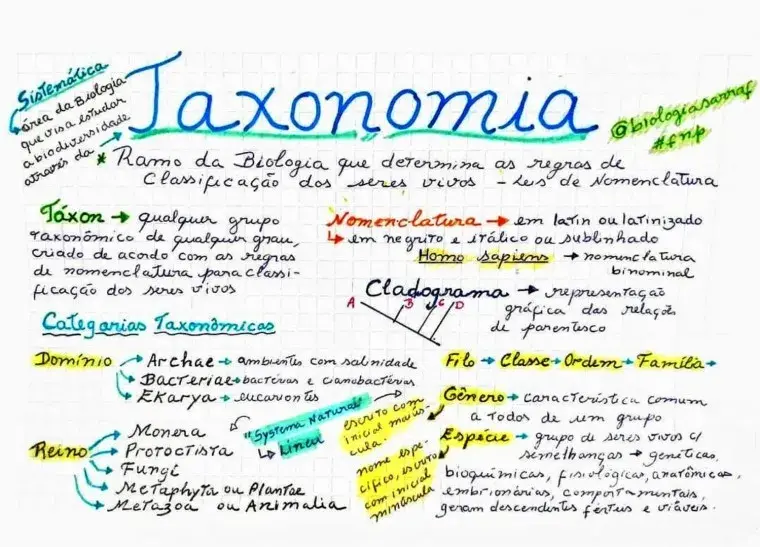 Sistemática
área da Biologia
que visa estudar
a biodiversidade
através da
Taxonomia
@biologiasarraf
#fnp
* Ramo da Biologia que determina as regras de
Classificação dos seres vivos - Leis de Nomenclatura
Táxon → qualquer grupo
taxonômico de qualquer grau,
criado de acordo com as regras
de nomenclatura para classi-
ficação dos seres vivos
Nomenclatura → em latin ou latinizado
↳ em negrito e itálico ou sublinhado
Homo sapiens → nomenclatura
binominal
Cladograma → representação
gráfica das relações
de parentesco
A B C D
Categorias Taxonômicas
Domínio → Archae → ambientes com salinidade
→ Bacteriae → bactérias e cianobactérias
→ Ekarya → eucariontes
Reino → Monera
→ Protoctista
→ Fungi
→ Metaphyta ou Plantae
→ Metazoa ou Animalia
"Systema Natural"
↳ Lineu
Filo → Classe → Ordem → Família →
Gênero → característica comum
a todos de um grupo
escrito com
inicial maiús-
cula.
Espécie → grupo de seres vivos c/
semelhanças → genéticas,
bioquímicas, fisiológicas, anatômicas,
embrionárias, comportamentais,
geram descendentes férteis e viáveis.
nome espe-
cífico, escrito
com inicial
minúscula